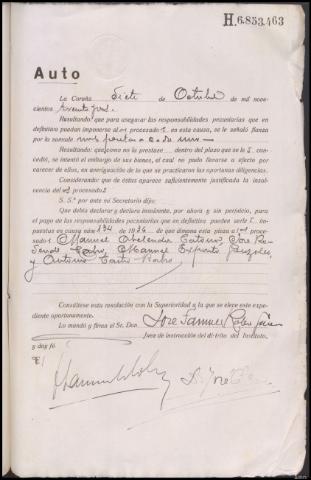 H.6.853.463
Auto
La Coruña Siete de Octubre de mil nove-
cientos treinta y
Resultando: que para asegurar las responsabilidades pecuniarias que en
definitiva puedan imponerse al os procesado s en esta causa, se le señaló fianza
por la cantidad mil pesetas a cada uno
Resultando: que como no la prestase dentro del plazo que se le con-
cedió, se intentó el embargo de sus bienes, el cual no pudo llevarse a efecto por
carecer de ellos, en averiguación de lo que se practicaron las oportunas diligencias.
Considerando que de éstas aparece suficientemente justificada la insol-
vencia del os procesado s
S. S.ª por ante mi Secretario dijo:
Que debía declarar y declara insolvente, por ahora y sin perjuicio, para
el pago de las responsabilidades pecuniarias que en definitiva puedan serle im-
puestas en causa núm. 134 de 1936 de que dimana esta pieza al os pro-
cesado s Manuel Abelenda José Re-
Manuel Expósito
y Antonio Castro
Consúltese esta resolución con la Superioridad a la que se eleve este expe-
diente oportunamente.
Lo mandó y firma el Sr. Don José Samuel
Juez de instrucción del distrito del Instituto,
y doy fé.
E/